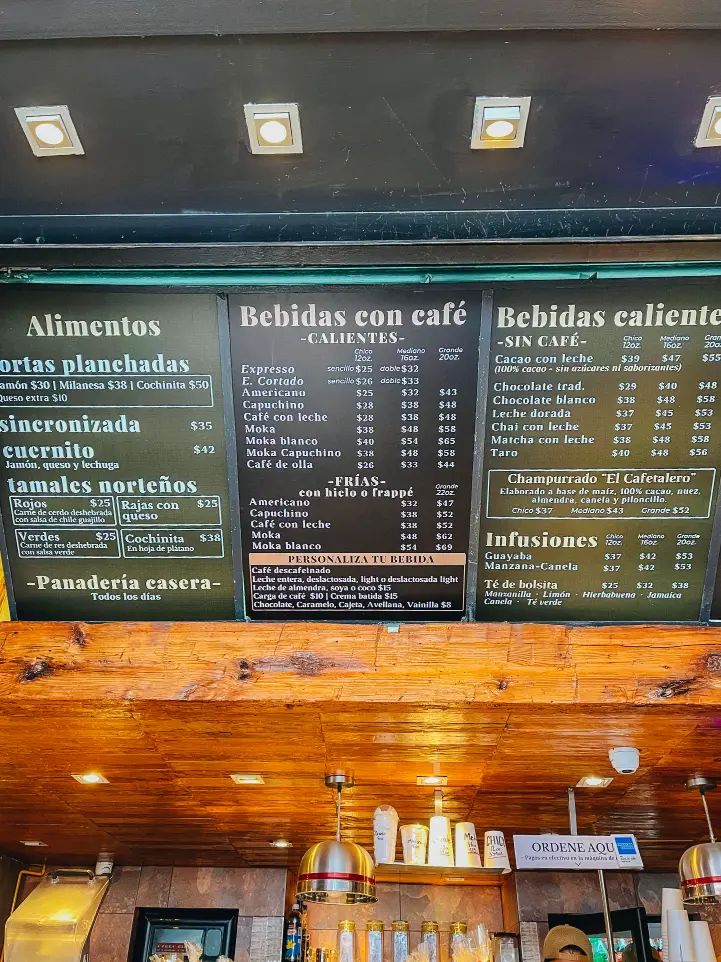 Alimentos
ortas planchadas
amón $30 | Milanesa $38 | Cochinita $50
Queso extra $10
sincronizada $35
cuernito $42
Jamón, queso y lechuga
tamales norteños
Rojos $25
Carne de cerdo deshebrada
con salsa de chile guajillo
Rajas con $25
queso
Verdes $25
Carne de res deshebrada
con salsa verde
Cochinita $38
En hoja de plátano
-Panadería casera-
Todos los días
Bebidas con café
-CALIENTES-
Chico 12oz. Mediano 16oz. Grande 20oz.
Expresso sencillo $25 doble $32
E. Cortado sencillo $26 doble $33
Americano $25 $32 $43
Capuchino $28 $38 $48
Café con leche $28 $38 $48
Moka $38 $48 $58
Moka blanco $40 $54 $65
Moka Capuchino $38 $48 $58
Café de olla $26 $33 $44
-FRÍAS-
con hielo o frappé
Grande 22oz.
Americano $32 $47
Capuchino $38 $52
Café con leche $38 $52
Moka $48 $62
Moka blanco $54 $69
PERSONALIZA TU BEBIDA
Café descafeinado
Leche entera, deslactosada, light o deslactosada light
Leche de almendra, soya o coco $15
Carga de café $10 | Crema batida $15
Chocolate, Caramelo, Cajeta, Avellana, Vainilla $8
Bebidas caliente
-SIN CAFÉ-
Chico 12oz. Mediano 16oz. Grande 20oz.
Cacao con leche $39 $47 $55
(100% cacao - sin azúcares ni saborizantes)
Chocolate trad. $29 $40 $48
Chocolate blanco $38 $48 $58
Leche dorada $37 $45 $53
Chai con leche $37 $45 $53
Matcha con leche $38 $48 $58
Taro $40 $48 $56
Champurrado "El Cafetalero"
Elaborado a base de maíz, 100% cacao, nuez,
almendra, canela y piloncillo.
Chico $37 Mediano $43 Grande $52
Infusiones
Chico 12oz. Mediano 16oz. Grande 20oz.
Guayaba $37 $42 $53
Manzana-Canela $37 $42 $53
Té de bolsita $25 $32 $38
Manzanilla · Limón · Hierbabuena · Jamaica
Canela · Té verde
ORDENE AQU
Pagos en efectivo en la máquina de